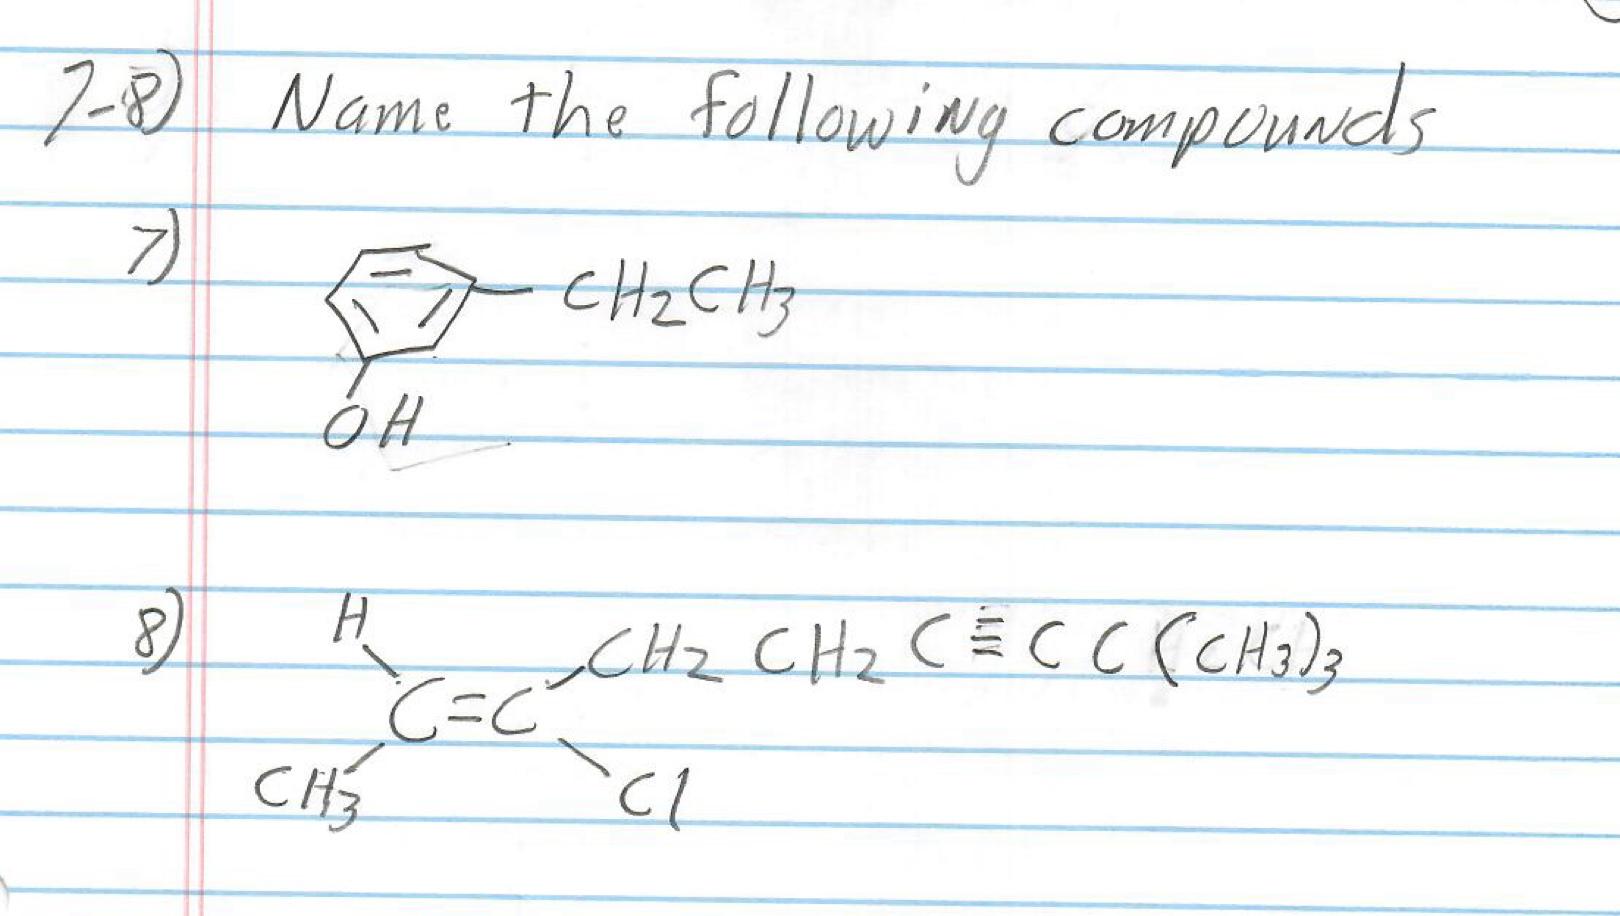 7-8) Name the following compounds
7)
CH2CH3
OH
8)
H
CH2 CH2 C≡C C(CH3)3
C=C
CH3
Cl